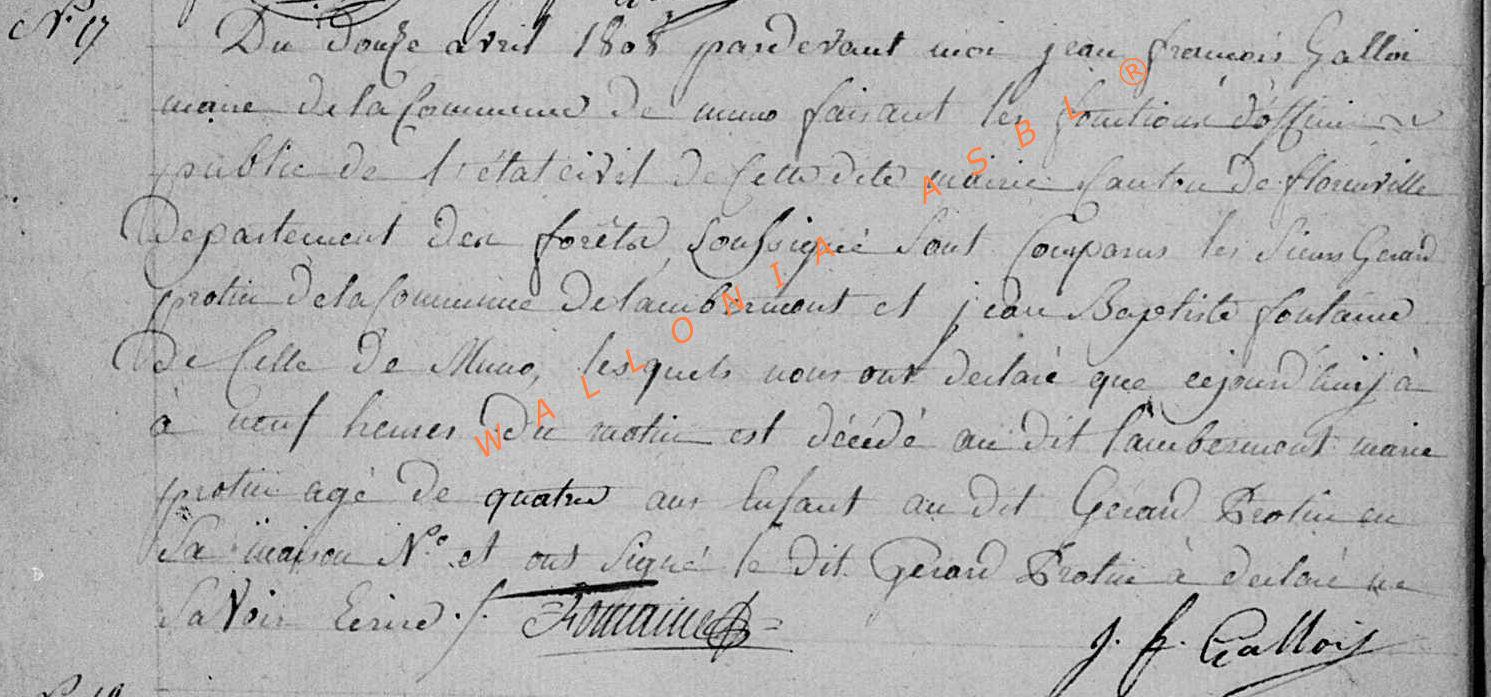 N.° 17
Du douze avril 1808 pardevant moi jean françois Galloi
maire de la Commune de muno faisant les fonctions d'officier
public de l'état civil de Cette dite mairie Canton de florenville
Departement des forêts, soussigné sont Comparus les sieurs Gerard
protin de la Commune de lambermont et jean Baptiste fontaine
de Celle de Muno, lesquels nous ont declaré que cejourd'huij à
à neuf heures du matin est décédé au dit lambermont marie
protin agé de quatre ans Enfant au dit Gerard Protin en
Sa maison N.° et ont signé le dit Gerard Protin à declaré ne
Savoir Ecrire ./.
J. f. Gallois
WALLONIA ASBL ®